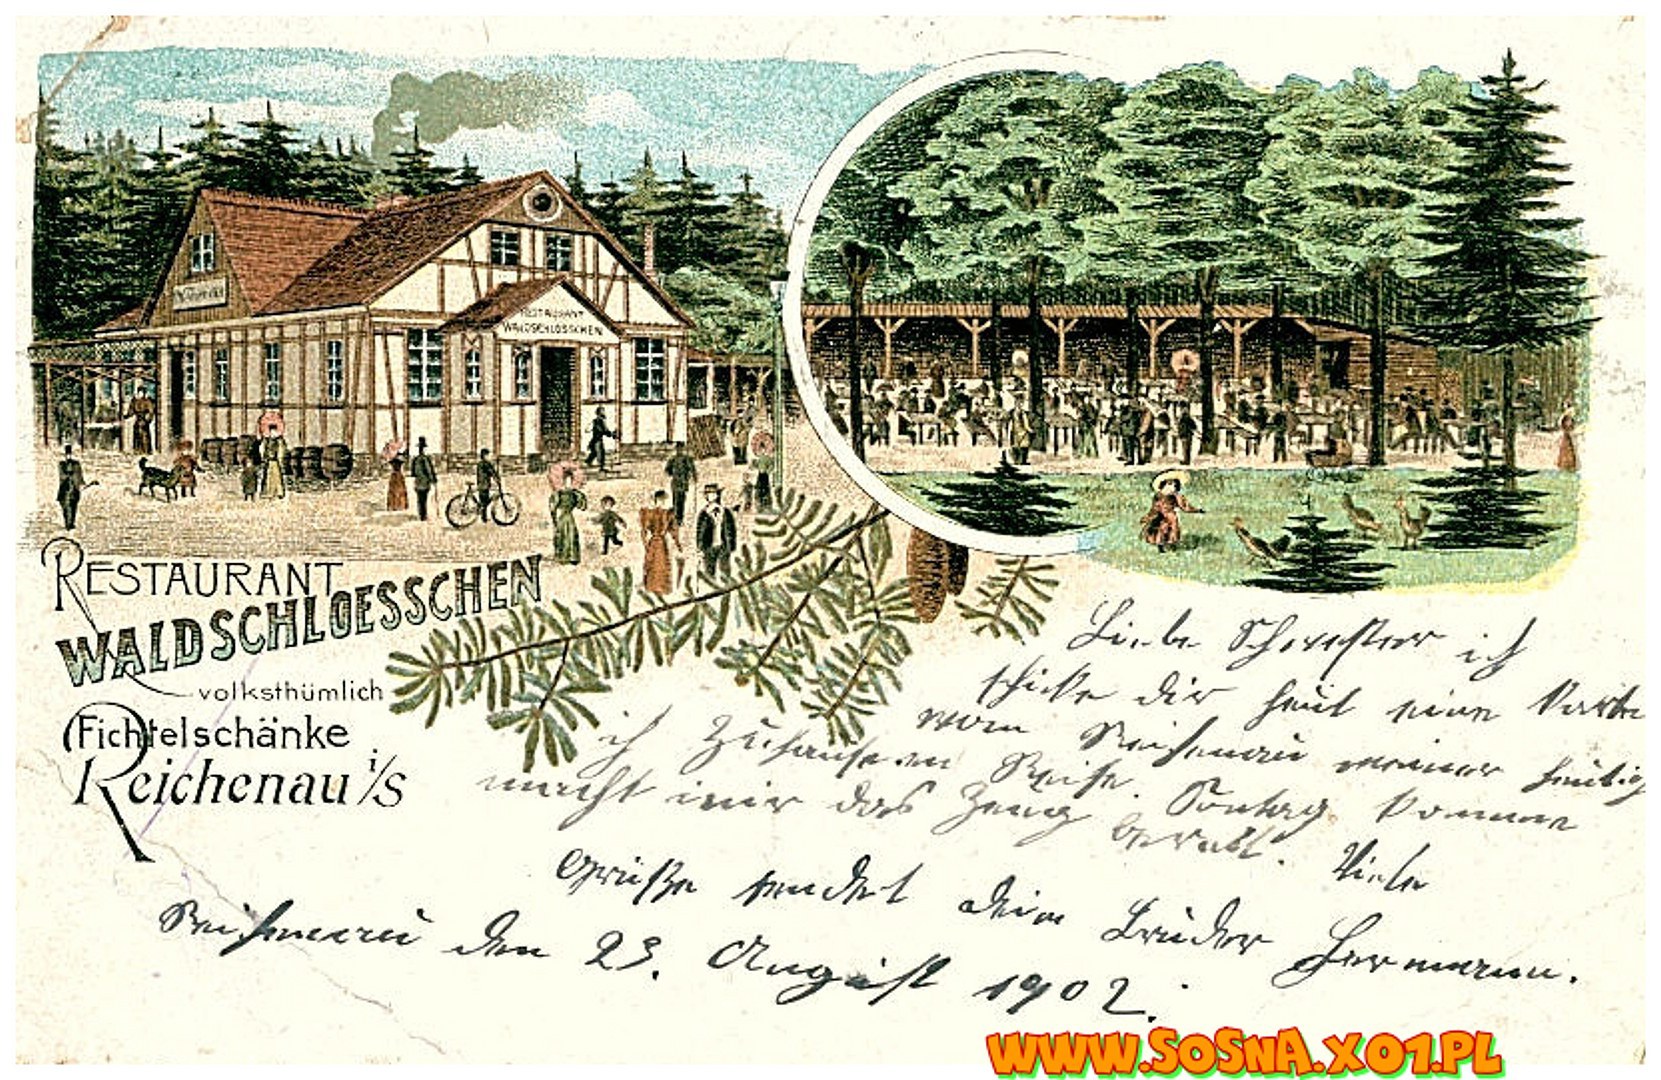 RESTAURANT
WALDSCHLÖSSCHEN
RESTAURANT
WALDSCHLOESSCHEN
volksthümlich
(Fichtelschänke
Reichenau i/S
Liebe Schwester ich
schicke dir heut eine Karte
vom Reichenau meiner heutig
Reise. Sontag komme
ich
macht mir das Zeug
Viele
Grüße sendet dein Bruder Hermann.
Reichenau den 23. August 1902.
WWW.SOSNA.X01.PL